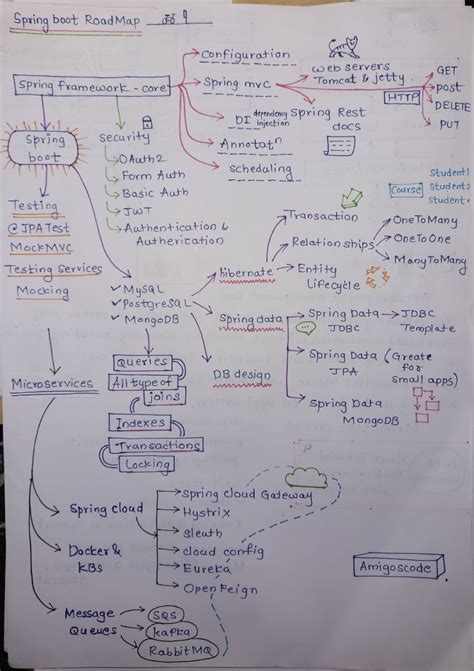 Spring boot RoadMap
Configuration
Spring framework - core
Spring mvc
web servers
Tomcat & jetty
HTTP
GET
post
DELETE
PUT
DI dependency
Injection
Spring Rest
docs
Annotatn
scheduling
Spring
boot
security
OAuth2
Form Auth
Basic Auth
JWT
Authentication &
Autherization
Course
Student1
Student2
Student
Testing
@JPATest
MockMVC
Testing Services
Mocking
Transaction
Relationships
OneToMany
OneToOne
ManyToMany
hibernate
Entity
Lifecycle
MySQL
PostgreSQL
MongoDB
Spring data
Spring Data
JDBC
JDBC
Template
Spring Data
JPA
(Great
for
small apps)
Spring Data
MongoDB
DB design
Queries
All type of
joins
Indexes
Transactions
Locking
Microservices
Spring cloud
Spring cloud Gateway
Hystrix
Sleuth
cloud config
Eureka
Open Feign
Docker &
K8s
Amigoscode
Message
Queues
SQS
kafka
RabbitMQ